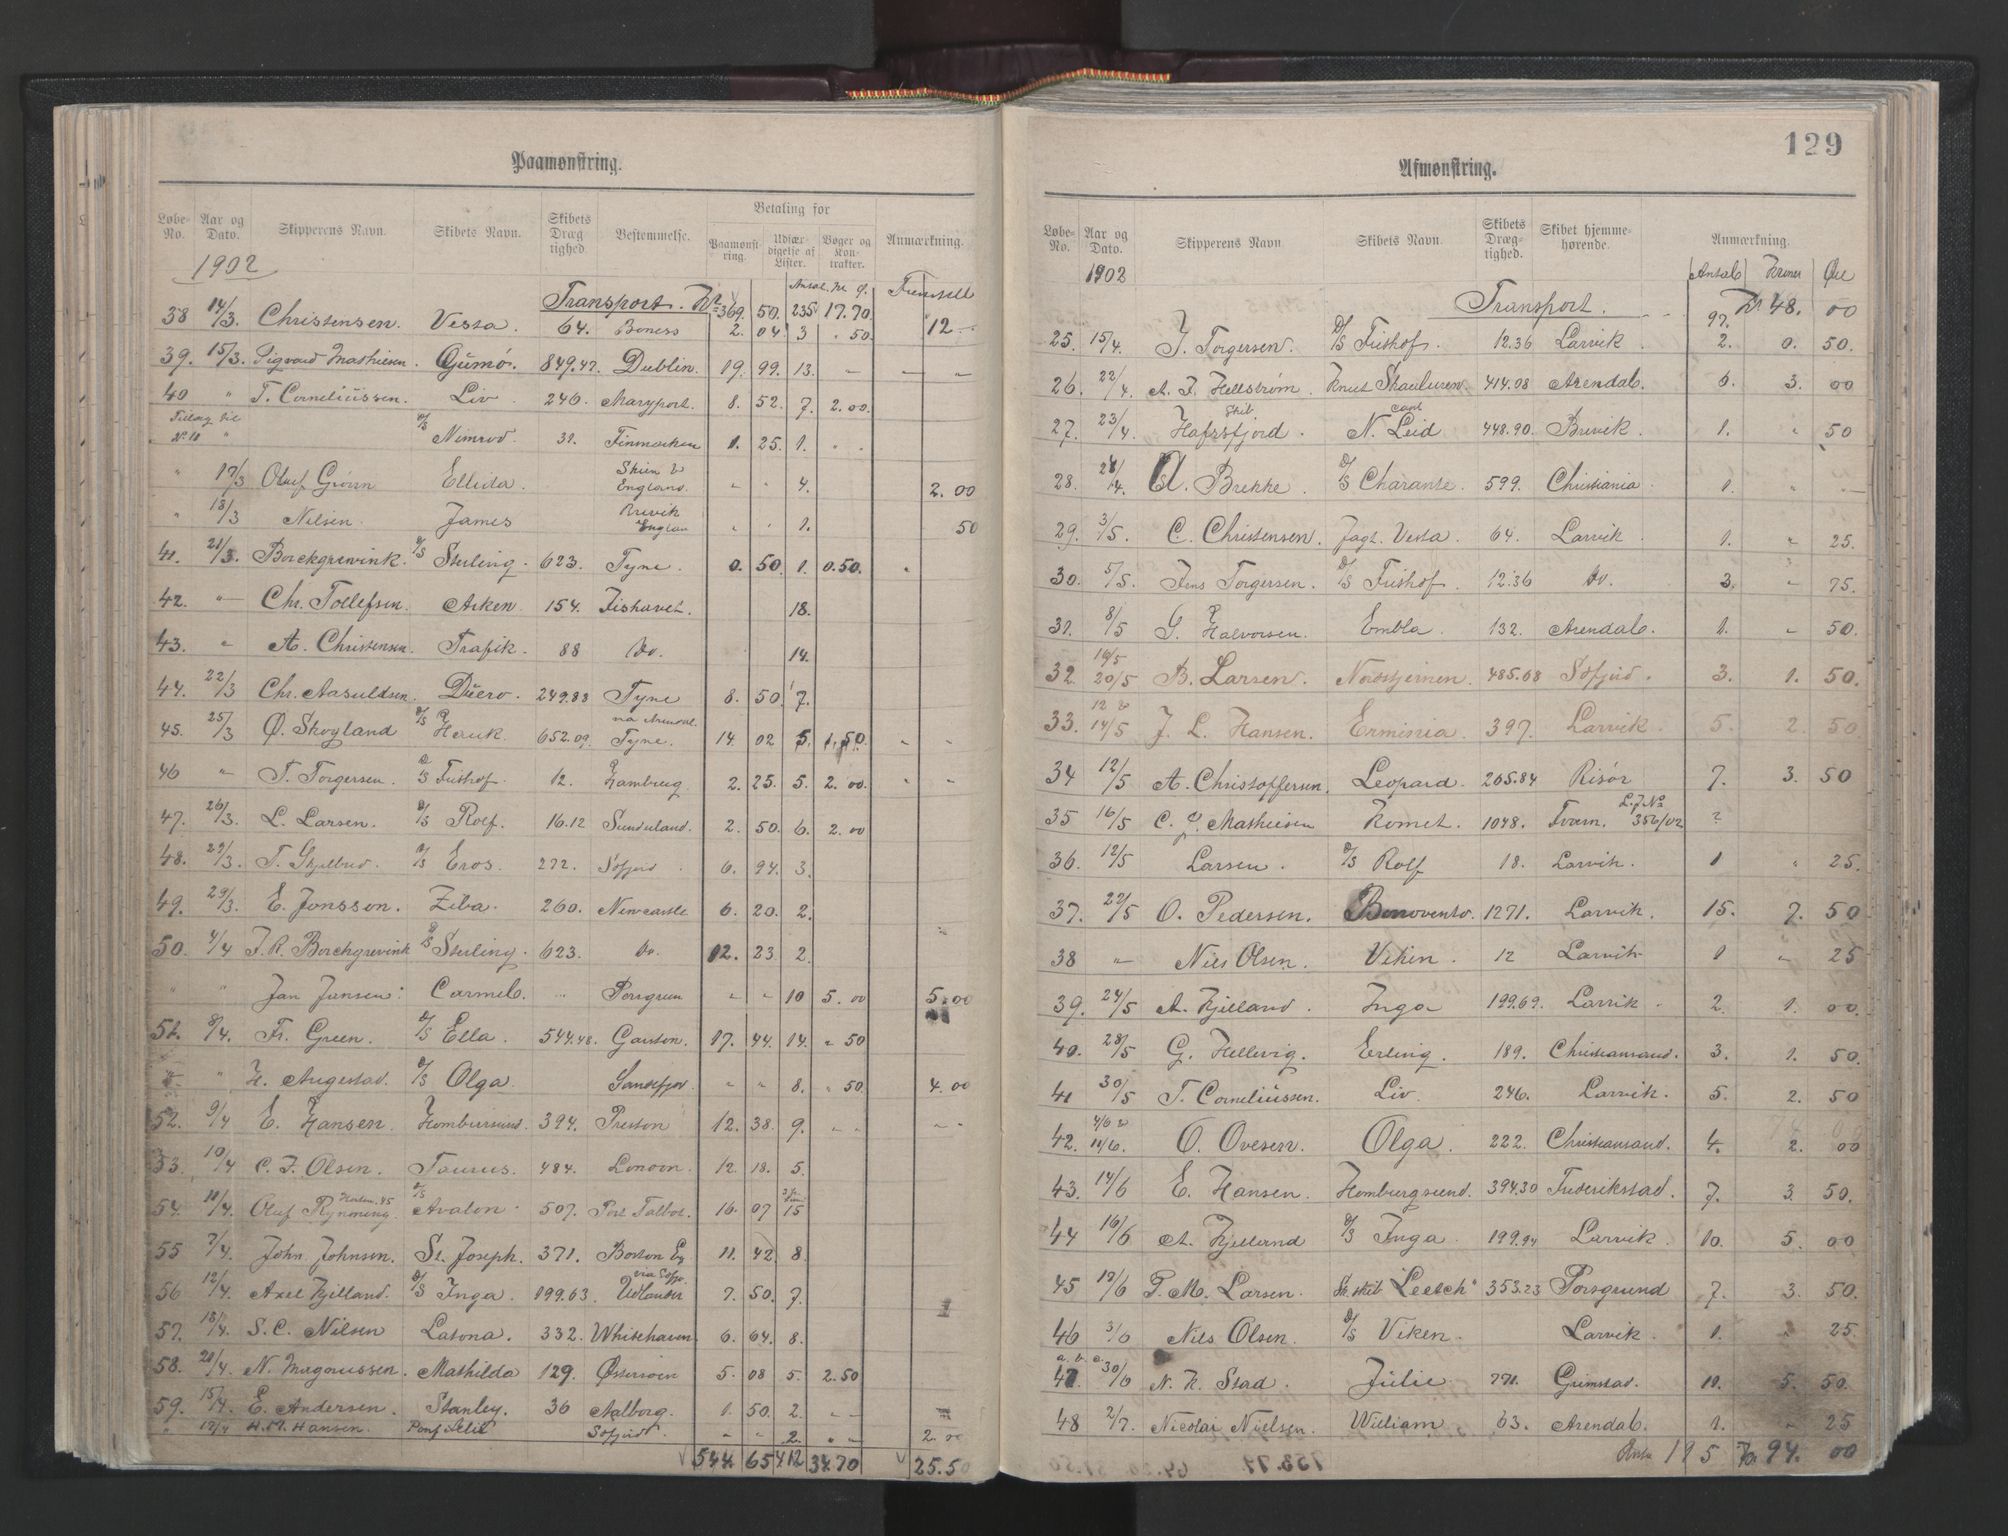 Paamønstring.
Løbe-No. Aar og Dato. Skipperens Navn. Skibets Navn. Skibets Dræg-tighed. Bestemmelse. Betaling for Paamønst-ring. Udfær-digelse af Lister. Bøger og Kon-trakter. Anmærkning.
1902
Transport. Kr. 369. 50. 235 17.70.
38 14/3. Christensen. Vesta. 64. Boness 2. 04 3 " 50. 12 -
39. 15/3. Sigvard Mathiesen. Gjumø. 849.47. Dublin. 19. 99. 13. - - "
40 " T. Corneliussen. Liv. 246. Maryport. 8. 52. 7. 2.00.
Tillæg til No. 10 " D/S Nimrod. 31. Finmarken 1. 25. 1. " "
" 17/3 Oluf Ellida. Skien & England. " " 4. 2.00
" 18/3 Nilsen. James Brevik England " " 1. 50
41. 21/3. Borchgrevink. D/S Sterling. 623. Tyne. 0. 50. 1. 0.50. "
42. "- Chr. Tollefsen. Arken. 154. Ishavet. 18.
43. " A. Christensen. Trafik. 88 Do. 14.
44. 22/3 Chr. Aasuldsen. Duero. 249.83 Tyne 8. 50. 7.
45. 25/3 Ø. Skogland D/S Hauk. 652.09. via Arendal. Tyne. 14. 02 5. 1.50. " "
46 "- T. Torgersen. D/S Fiishof. 12. Hamburg 2. 25. 5. 2.00. " "
47. 26/3. L. Larsen. D/S Rolf. 16.12 Sunderland. 2. 50. 6. 2.00
48. 27/3. T. D/S Eros. 272. Søfjord. 6. 94. 3.
49. 29/3. E. Jonsson. Ziba. 260. Newcastle 6. 20. 2.
50. 4/4 F. R. Borchgrevink D/S Sterling. 623. Do. 12. 23 2.
" " Jan Jansen. Carmel. Porsgrun " " 10 5.00 5.00
51. 8/4. Fr. Green. D/S Ella. 544.48. Garston. 17. 44. 14. " 50
" " H. Augestad. D/S Olga. Sandefjor. " " 8. " 50 4.00
52. 9/4 E. Hansen. Homborsund. 394. Preston 12. 38. 9. " " " "
53. 10/4 C. F. Olsen. Taurus. 484. London. 12. 18. 5.
54. 10/4. Oluf Rynning. D/S Avalon. 507. Port Talbot. 16. 07 15
55 7/4. John Johnsen. St. Joseph. 371. Boston 11. 42. 8.
56 12/4. Axel Kjelland. D/S Inga. 199.63. Udlandet via Søfjo. 7. 50. 7.
57. 18/4. S. C. Nilsen Latona. 332. Whitehaven 6. 64. 8.
58. 20/4. N. Magnussen. Mathilda 129. Østersøen 5. 08 5. 2.50
59. 15/4. E. Andersen. Stanley. 36 Aalborg. 1. 50. 2. " "
" 17/4 H. M. Hansen. Søfjord. " " 2. " " 2.00
544. 65 412 34.70 25.50
129
Afmønstring.
Løbe-No. Aar og Dato. Skipperens Navn. Skibets Navn. Skibets Dræg-tighed. Skibet hjemme-hørende. Anmærkning.
1902 Antal Kroner Øre
Transport. 97. Kr. 48. 00
25. 15/4. J. Torgersen. D/S Fiishof. 12.36 Larvik. 2. 0. 50.
26. 22/4. A. T. Hellstrøm. Knut Skaaluren. 414.08 Arendal. 6. 3. 00
27. 23/4. Hafrsfjord. Skib. N. Leid Capt 448.90. Brevik. 1. " 50
28. 24/4. A. Brekke. D/S Charante. 599. Christiania 1. " -
29. 3/5. C. Christensen. Jagt. Vesta. 64. Larvik. 1. " 25.
30. 5/5. Jens Torgersen. D/S Fiishof. 12.36 Do. 3. " 75.
31. 8/5 G. Halvorsen. Embla. 132. Arendal. 1. " 50.
32. 16/5 20/5 B. Larsen. Nordstjernen. 485.68 Søfjord. 3. 1. 50.
33. 12 & 14/5 J. L. Hansen. Erminia. 397. Larvik. 5. 2. 50
34 12/5 A. Christoffersen. Leopard. 205.84 Risør 7. 3. 50
35 16/5 C. J. Mathiesen Komet. 1048. Tvam. L. J. No. 356/02 ?
36. 12/5 Larsen. D/S Rolf 18. Larvik. 1 " 25.
37. 22/5 O. Pedersen. Benovento. 1271. Larvik. 15. 7. 50
38 "- Nils Olsen. Viken. 12 Larvik 1 " 25
39. 24/5 A. Kjelland. Inga 199.69. Larvik. 2. 1. 00.
40. 28/5 G. Hellevig. Erling. 189. Christiansand. 3. 1. 50.
41 30/5 T. Corneliussen. Liv. 246. Larvik. 5. 2. 50
42. 4/6 & 10/6. O. Ovesen. Olga. 222. Christiansand. 4. 2. 00
43. 14/6 E. Hansen. Homborgsund. 394.30 Frederikstad. 7. 3. 50.
44 16/6 A. Kjelland D/S Inga. 199.94 Larvik. 10. 5. 00
45 19/6 P. M. Larsen. Sk. skib "Leetch" 353.23 Porsgrund 7. 3. 50.
46 3/6 Nils Olsen. D/S Viken. Larvik. 1. " 25.
a. b. c. 47 30/6 N. K. Stad. Julie 771. Grimstad. 11. 5. 50.
48 2/7. Nicolai Nielsen. William 63. Arendal. 1. " 25
195 Kr. 94. 00